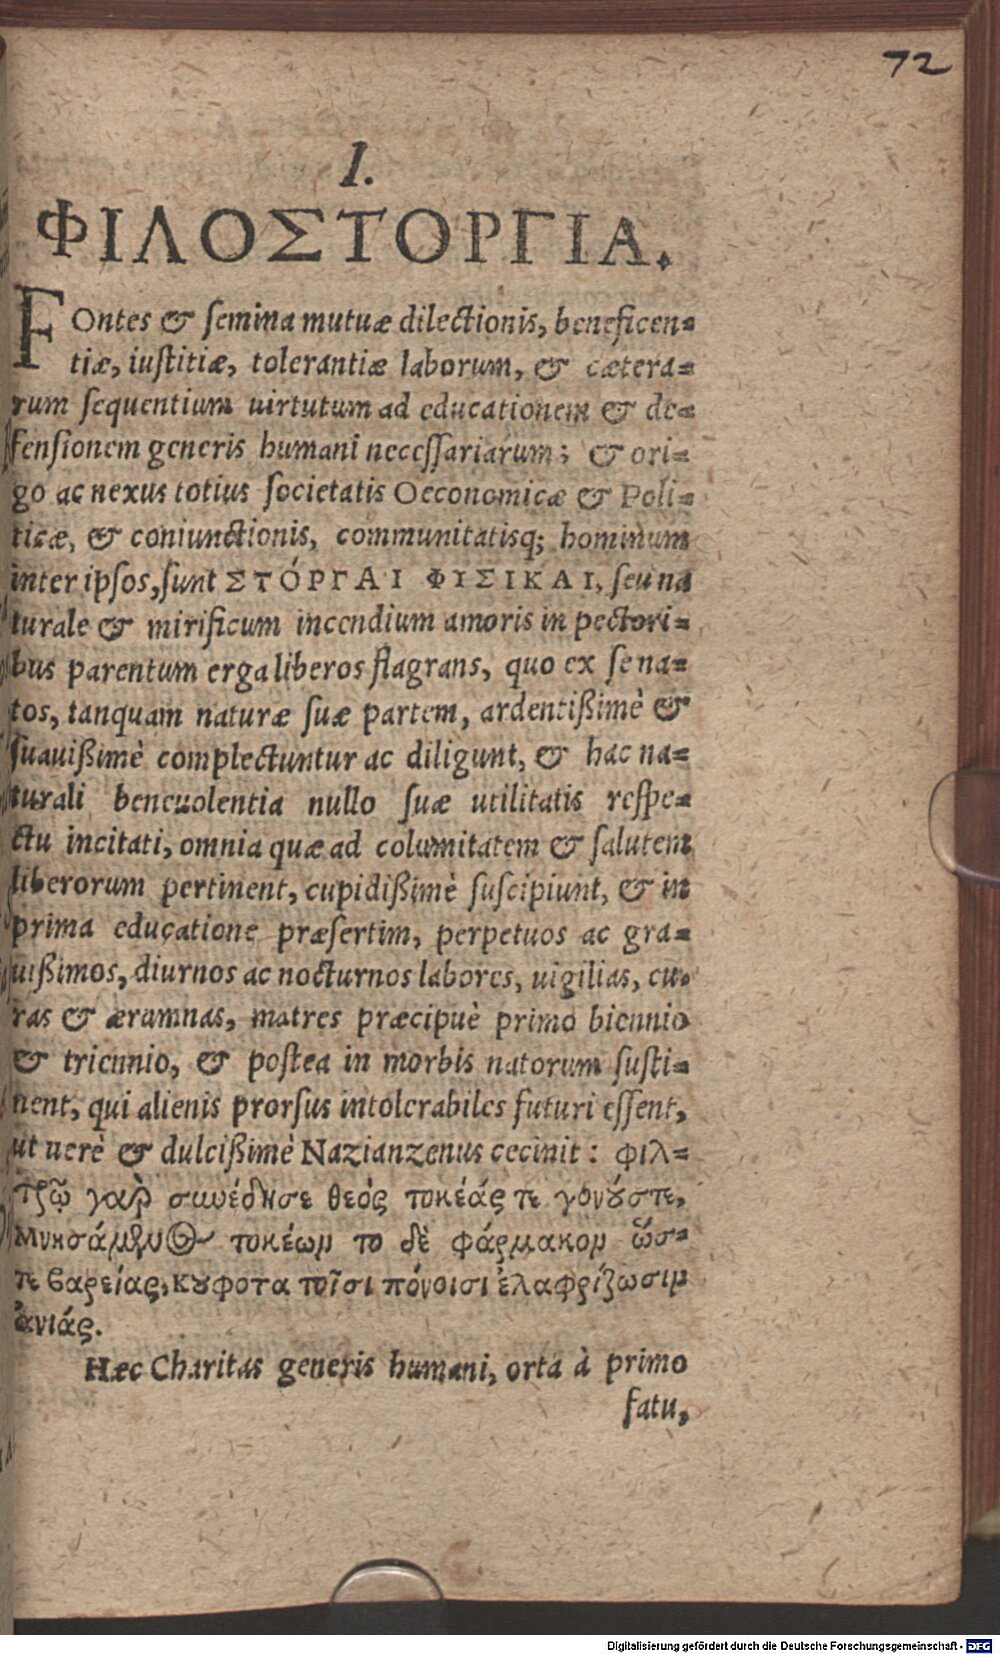 72
I.
ΦΙΛΟΣΤΟΡΓΙΑ.
FOntes & ſemina mutuæ dilectionis, beneficen=
tiæ, iuſtitiæ, tolerantiæ laborum, & cætera=
rum ſequentium uirtutum ad educationem & de=
fenſionem generis humani neceſſariarum; & ori=
go ac nexus totius ſocietatis Oeconomicæ & Poli=
ticæ, & coniunctionis, communitatisq; hominum
inter ipſos, ſunt ΣΤΟΡΓΑΙ ΦΙΣΙΚΑΙ, ſeu na
turale & mirificum incendium amoris in pectori=
bus parentum erga liberos flagrans, quo ex ſe na=
tos, tanquam naturæ ſuæ partem, ardentißimè &
ſuauißimè complectuntur ac diligunt, & hac na=
turali beneuolentia nullo ſuæ utilitatis reſpe=
ctu incitati, omnia quæ ad columitatem & ſalutem
liberorum pertinent, cupidißimè ſuſcipiunt, & in
prima educatione præſertim, perpetuos ac gra=
uißimos, diurnos ac nocturnos labores, uigilias, cu=
ras & ærumnas, matres præcipuè primo biennio
& triennio, & poſtea in morbis natorum ſuſti=
nent, qui alienis prorſus intolerabiles futuri eſſent,
ut uerè & dulcißimè Nazianzenus cecinit: φιλ=
τρῷ γαρ συνέδησε θεός τοκέάς τε γονούςτε,
μνησάμενος τοκέωμ το δὲ φάρμακομ ὥσ=
τε βαρείας, κουφοτα τοῖσι πόνοισι ἐλαφρίζωσιμ
ἀνιάς.
Hæc Charitas generis humani, orta à primo
ſatu,
Digitalisierung gefördert durch die Deutsche Forschungsgemeinschaft - DFG